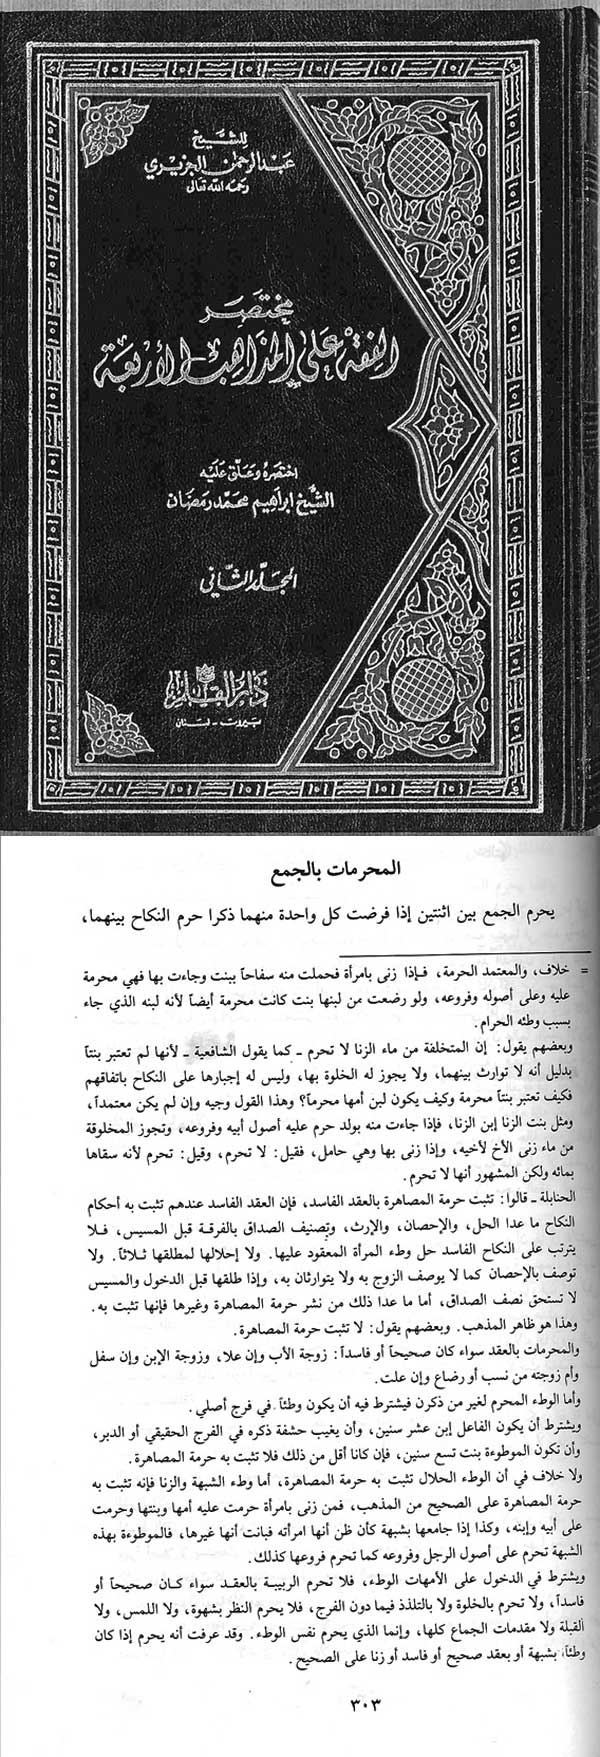 للشيخ
عبد الرحمن الجزيري
رحمه الله تعالى
مختصر
الفقه على المذاهب الأربعة
اختصره وعلق عليه
الشيخ ابراهيم محمد رمضان
المجلد الثاني
دار القلم
بيروت - لبنان
المحرمات بالجمع
يحرم الجمع بين اثنتين إذا فرضت كل واحدة منهما ذكرا حرم النكاح بينهما،
= خلاف، والمعتمد الحرمة، فإذا زنى بامرأة فحملت منه سفاحاً ببنت وجاءت بها فهي محرمة
عليه وعلى أصوله وفروعه، ولو رضعت من لبنها بنت كانت محرمة أيضاً لأنه لبنه الذي جاء
بسبب وطئه الحرام.
وبعضهم يقول: إن المتخلفة من ماء الزنا لا تحرم - كما يقول الشافعية - لأنها لم تعتبر بنتاً
بدليل أنه لا توارث بينهما، ولا يجوز له الخلوة بها، وليس له إجبارها على النكاح باتفاقهم
فكيف تعتبر بنتاً محرمة وكيف يكون لبن أمها محرماً؟ وهذا القول وجيه وإن لم يكن معتمداً،
ومثل بنت الزنا إبن الزنا، فإذا جاءت منه بولد حرم عليه أصول أبيه وفروعه، وتجوز المخلوقة
من ماء زنى الأخ لأخيه، وإذا زنى بها وهي حامل، فقيل: لا تحرم، وقيل: تحرم لأنه سقاها
بمائه ولكن المشهور أنها لا تحرم.
الحنابلة - قالوا: تثبت حرمة المصاهرة بالعقد الفاسد، فإن العقد الفاسد عندهم تثبت به أحكام
النكاح ما عدا الحل، والإحصان، والإرث، وتصنيف الصداق بالفرقة قبل المسيس، فلا
يترتب على النكاح الفاسد حل وطء المرأة المعقود عليها. ولا إحلالها لمطلقها ثلاثاً. ولا
توصف بالإحصان كما لا يوصف الزوج به ولا يتوارثان به، وإذا طلقها قبل الدخول والمسيس
لا تستحق نصف الصداق، أما ما عدا ذلك من نشر حرمة المصاهرة وغيرها فإنها تثبت به.
وهذا هو ظاهر المذهب. وبعضهم يقول: لا تثبت حرمة المصاهرة.
والمحرمات بالعقد سواء كان صحيحاً أو فاسداً: زوجة الأب وإن علا، وزوجة الإبن وإن سفل
وأم زوجته من نسب أو رضاع وإن علت.
وأما الوطء المحرم لغير من ذكرن فيشترط فيه أن يكون وطئاً في فرج أصلي.
ويشترط أن يكون الفاعل إبن عشر سنين، وأن يغيب حشفة ذكره في الفرج الحقيقي أو الدبر،
وأن تكون الموطوءة بنت تسع سنين، فإن كانا أقل من ذلك فلا تثبت به حرمة المصاهرة.
ولا خلاف في أن الوطء الحلال تثبت به حرمة المصاهرة، أما وطء الشبهة والزنا فإنه تثبت به
حرمة المصاهرة على الصحيح من المذهب، فمن زنى بامرأة حرمت عليه أمها وبنتها وحرمت
على أبيه وإبنه، وكذا إذا جامعها بشبهة كأن ظن أنها امرأته فبانت أنها غيرها، فالموطوءة بهذه
الشبهة تحرم على أصول الرجل وفروعه كما تحرم فروعها كذلك.
ويشترط في الدخول على الأمهات الوطء، فلا تحرم الربيبة بالعقد سواء كان صحيحاً أو
فاسداً، ولا تحرم بالخلوة ولا بالتلذذ فيما دون الفرج، فلا يحرم النظر بشهوة، ولا اللمس، ولا
القبلة ولا مقدمات الجماع كلها، وإنما الذي يحرم نفس الوطء. وقد عرفت أنه يحرم إذا كان
وطئاً، بشبهة أو بعقد صحيح أو فاسد أو زنا على الصحيح.
٣٠٣